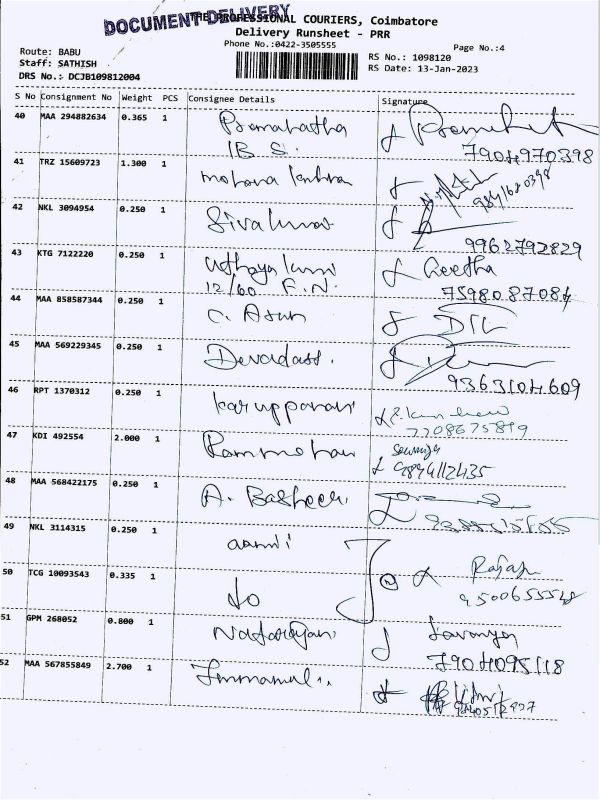 DOCUMENT DELIVERY
THE PROFESSIONAL COURIERS, Coimbatore
Delivery Runsheet - PRR
Phone No.:0422-3505555
Page No.:4
Route: BABU
Staff: SATHISH
DRS No.: DCJB109812004
RS No.: 1098120
RS Date: 13-Jan-2023
S No Consignment No Weight PCS Consignee Details Signature
40 MAA 294882634 0.365 1
B.S.
7904970398
41 TRZ 15609723 1.300 1
42 NKL 3094954 0.250 1 Sivakumar
9962792829
43 KTG 7122220 0.250 1 Geetha
12/60 F.N. 7598087084
44 MAA 858587344 0.250 1 C. Arun
45 MAA 569229345 0.250 1 Devadass.
9363104609
46 RPT 1370312 0.250 1
7708675899
47 KDI 492554 2.000 1 Rammohan Sowmiya
9894112435
48 MAA 568422175 0.250 1 A. Basheer.
49 NKL 3114315 0.250 1
50 TCG 10093543 0.335 1 do
51 GPM 268052 0.800 1 Natarajan Lavanya
7904095118
52 MAA 567855849 2.700 1